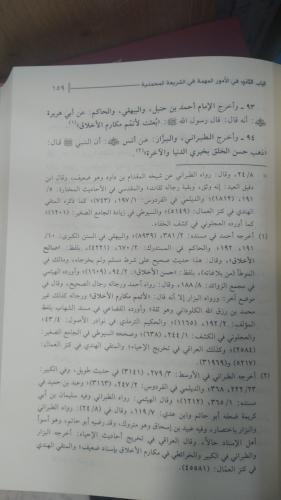 كتاب اللؤلؤ في الأمور المهمة في الشريعة المحمدية ١٥٩
٩٣ - وأخرج الإمام أحمد بن حنبل، والبيهقي، والحاكم: عن أبي هريرة
أنه قال: قال رسول الله ﷺ: «بُعثت لأتمّم مكارم الأخلاق»(١).
٩٤ - وأخرج الطبراني، والبزّار: عن أنس أن النبي ﷺ قال:
«ذهب حسن الخلق بخيري الدنيا والآخرة»(٢).
٢٤/٨، وقال: رواه الطبراني عن شيخه المقدام بن داود وهو ضعيف، وقال ابن
دقيق العيد: إنه وثق، وبقية رجاله ثقات؛ والمقدسي في الأحاديث المختارة: ٥/
١٩١ (١٨١٢)؛ والديلمي في الفردوس: ١٩٧/١ (٧٤٣) كما ذكره المتقي
الهندي في كنز العمال: (٥١٤٩)؛ والسيوطي في زيادة الجامع الصغير: (١٢٠١)
كما أورده العجلوني في كشف الخفاء
(١) أخرجه أحمد في مسنده: ٣٨١/٢ (٨٩٣٩)؛ والبيهقي في السنن الكبرى: ١٠/
١٩١، ١٩٢؛ والحاكم في المستدرك: ٦٧٠/٢ (٤٢٢١)، بلفظ: «صالح
الأخلاق»، وقال: هذا حديث صحيح على شرط مسلم ولم يخرجاه، ومالك في
الموطأ (من بلاغاته)، بلفظ: «حسن الأخلاق»: ٩٤/٢ (١٦٠٩)؛ وأورده الهيثمي
في مجمع الزوائد: ١٨٨/٨، وقال: رواه أحمد ورجاله رجال الصحيح، وقال في
موضع آخر: ورواه البزار إلا أنه قال: «لأتمم مكارم الأخلاق» ورجاله كذلك غير
محمد بن رزق الله الكلوذاني وهو ثقة؛ والقضاعي في مسند الشهاب بلفظ
المؤلف: ١٩٢/٢ (١١٦٥)؛ والحكيم الترمذي في نوادر الأصول:
والعجلوني في الكشف: ٢٤٤/١ (٦٣٨)؛ وصححه السيوطي في الجامع الصغير:
(٢٥٨٤)؛ وكذلك العراقي في تخريج الإحياء؛ والمتقي الهندي في كنز العمال:
(٥٢١٧) و(٣١٩٦٩).
(٢) أخرجه الطبراني في الأوسط: ٢٧٩/٣ (٣١٤١) في حديث طويل، وفي الكبير:
٢٢٢/٢٣، ٣٦٨؛ والديلمي في الفردوس: ٢٤٧/٢ (٣١٦٣)؛ وعبد بن حميد في
مسنده: ٣٦٥/١ (١٢١٢)؛ وقال الهيثمي: رواه الطبراني وفيه سليمان بن أبي
كريمة ضعفه أبو حاتم وابن عدي: ١١٩/٧، وقال في (٢٤/٨): رواه الطبراني
والبزار باختصار، وفيه عبيد بن إسحاق وهو متروك، وقد رضيه أبو حاتم، وهو أسوأ
أهل الإسناد حالاً، وقال العراقي في تخريج أحاديث الإحياء: أخرجه البزار
والطبراني في الكبير والخرائطي في مكارم الأخلاق بإسناد ضعيف؛ والمتقي الهندي
في كنز العمال: (٤٥٥٨١).